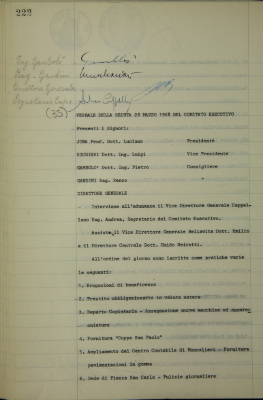 222
Ing. Gandolfi
Rag. Gandini
Direttore Generale
Segretario Capo
(35)
VERBALE DELLA SEDUTA 28 MARZO 1968 DEL COMITATO ESECUTIVO
Presenti i Signori:
JONA Prof. Dott. Luciano Presidente
Dott. Ing. Luigi Vice Presidente
Dott. Ing. Pietro Consigliere
GANDINI Rag. Renzo "
DIRETTORE GENERALE
- Interviene all'adunanza il Vice Direttore Generale Cappel-
lano Rag. Andrea, Segretario del Comitato Esecutivo.
Assiste il Vice Direttore Generale Dott. Emilio
e il Direttore Centrale Dott. Guido
All'ordine del giorno sono iscritte come pratiche varie
le seguenti:
1. Erogazioni di beneficenza
2. Prestito obbligazionario in valuta estera
3. Reparto Copisteria - Assegnazione nuove macchine ed
4. Fornitura "Coppe San Paolo"
5. Ampliamento del Centro Contabile di Moncalieri - Fornitura
pavimentazioni in gomma
6. Sede di Piazza San Carlo - Pulizie giornaliere